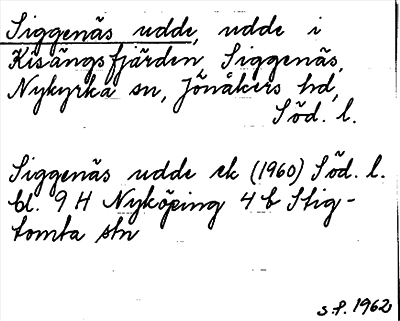 Siggenäs udde, udde i
Kisängsfjärden, Siggenäs,
Nykyrka sn, Jönåkers hd,
Söd. l.
Siggenäs udde ek (1960) Söd. l.
bl. 9 H Nyköping 4 b Stig-
tomta stn
s.f. 1962